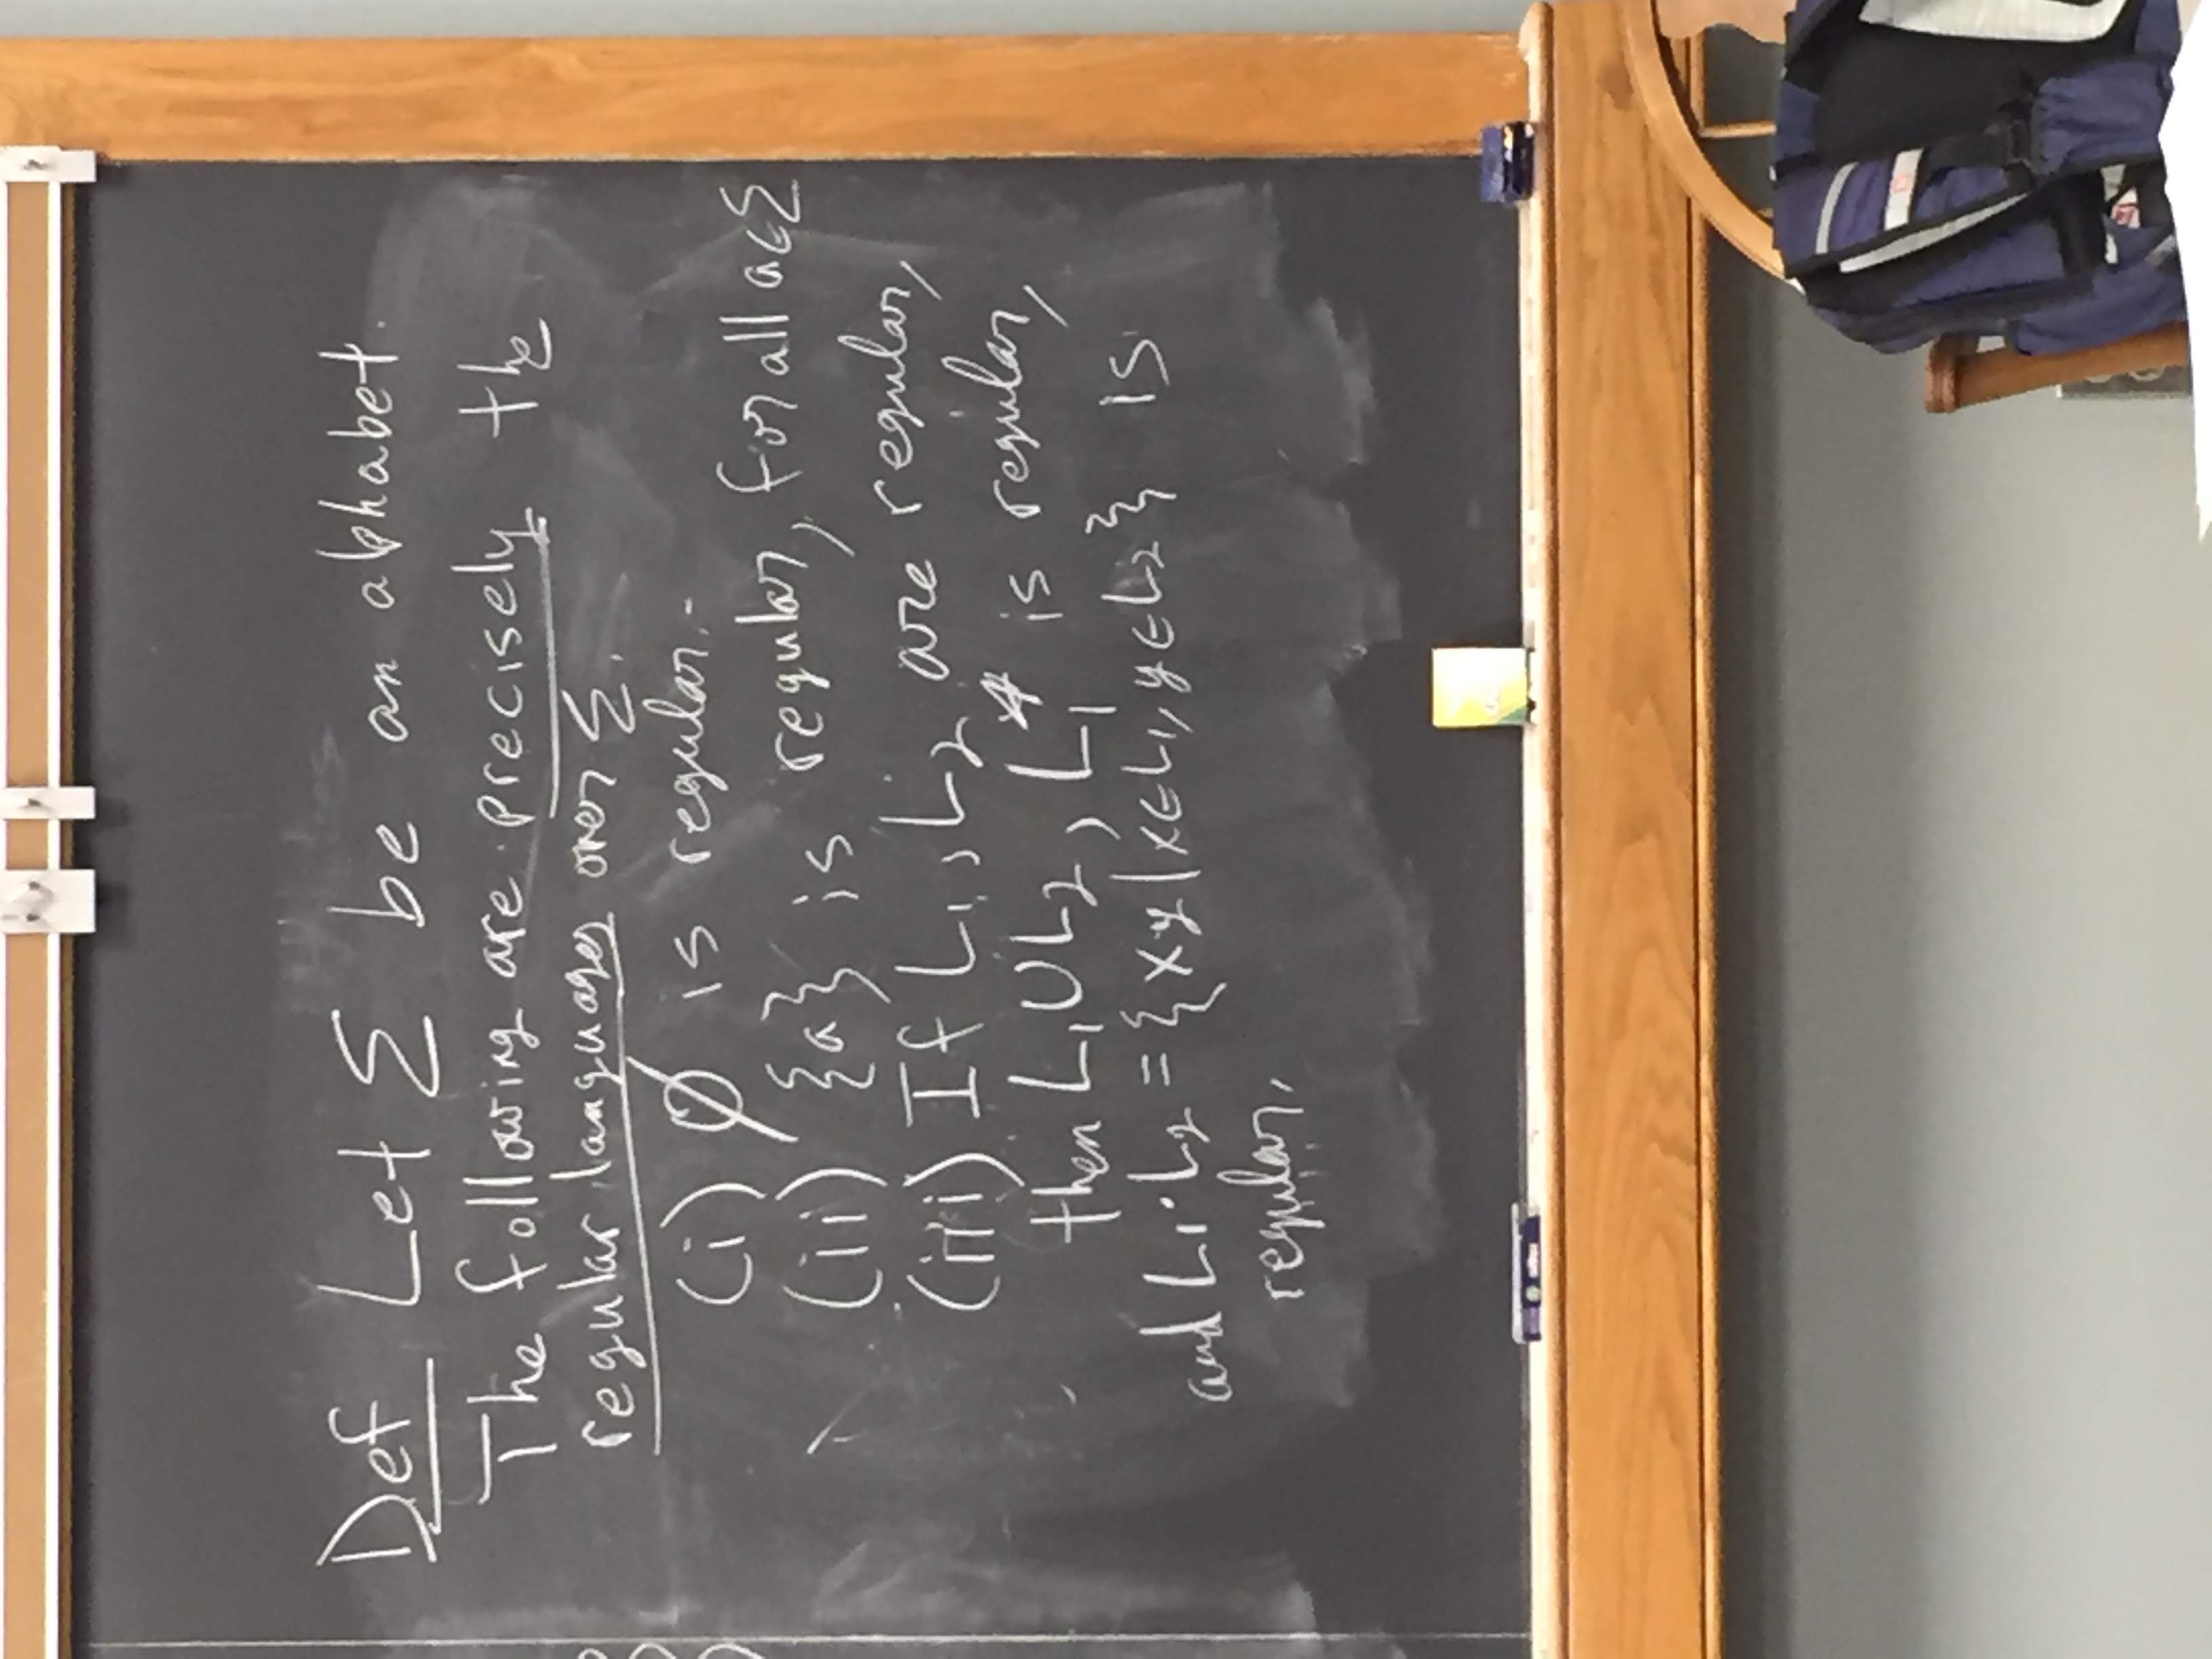 Def Let Σ be an alphabet.
The following are precisely the
regular languages over Σ.
(i) ∅ is regular.
(ii) {a} is regular, for all a∈Σ
(iii) If L₁, L₂ are regular,
then L₁∪L₂, L₁* is regular,
and L₁·L₂ = {xy|x∈L₁, y∈L₂} is
regular.